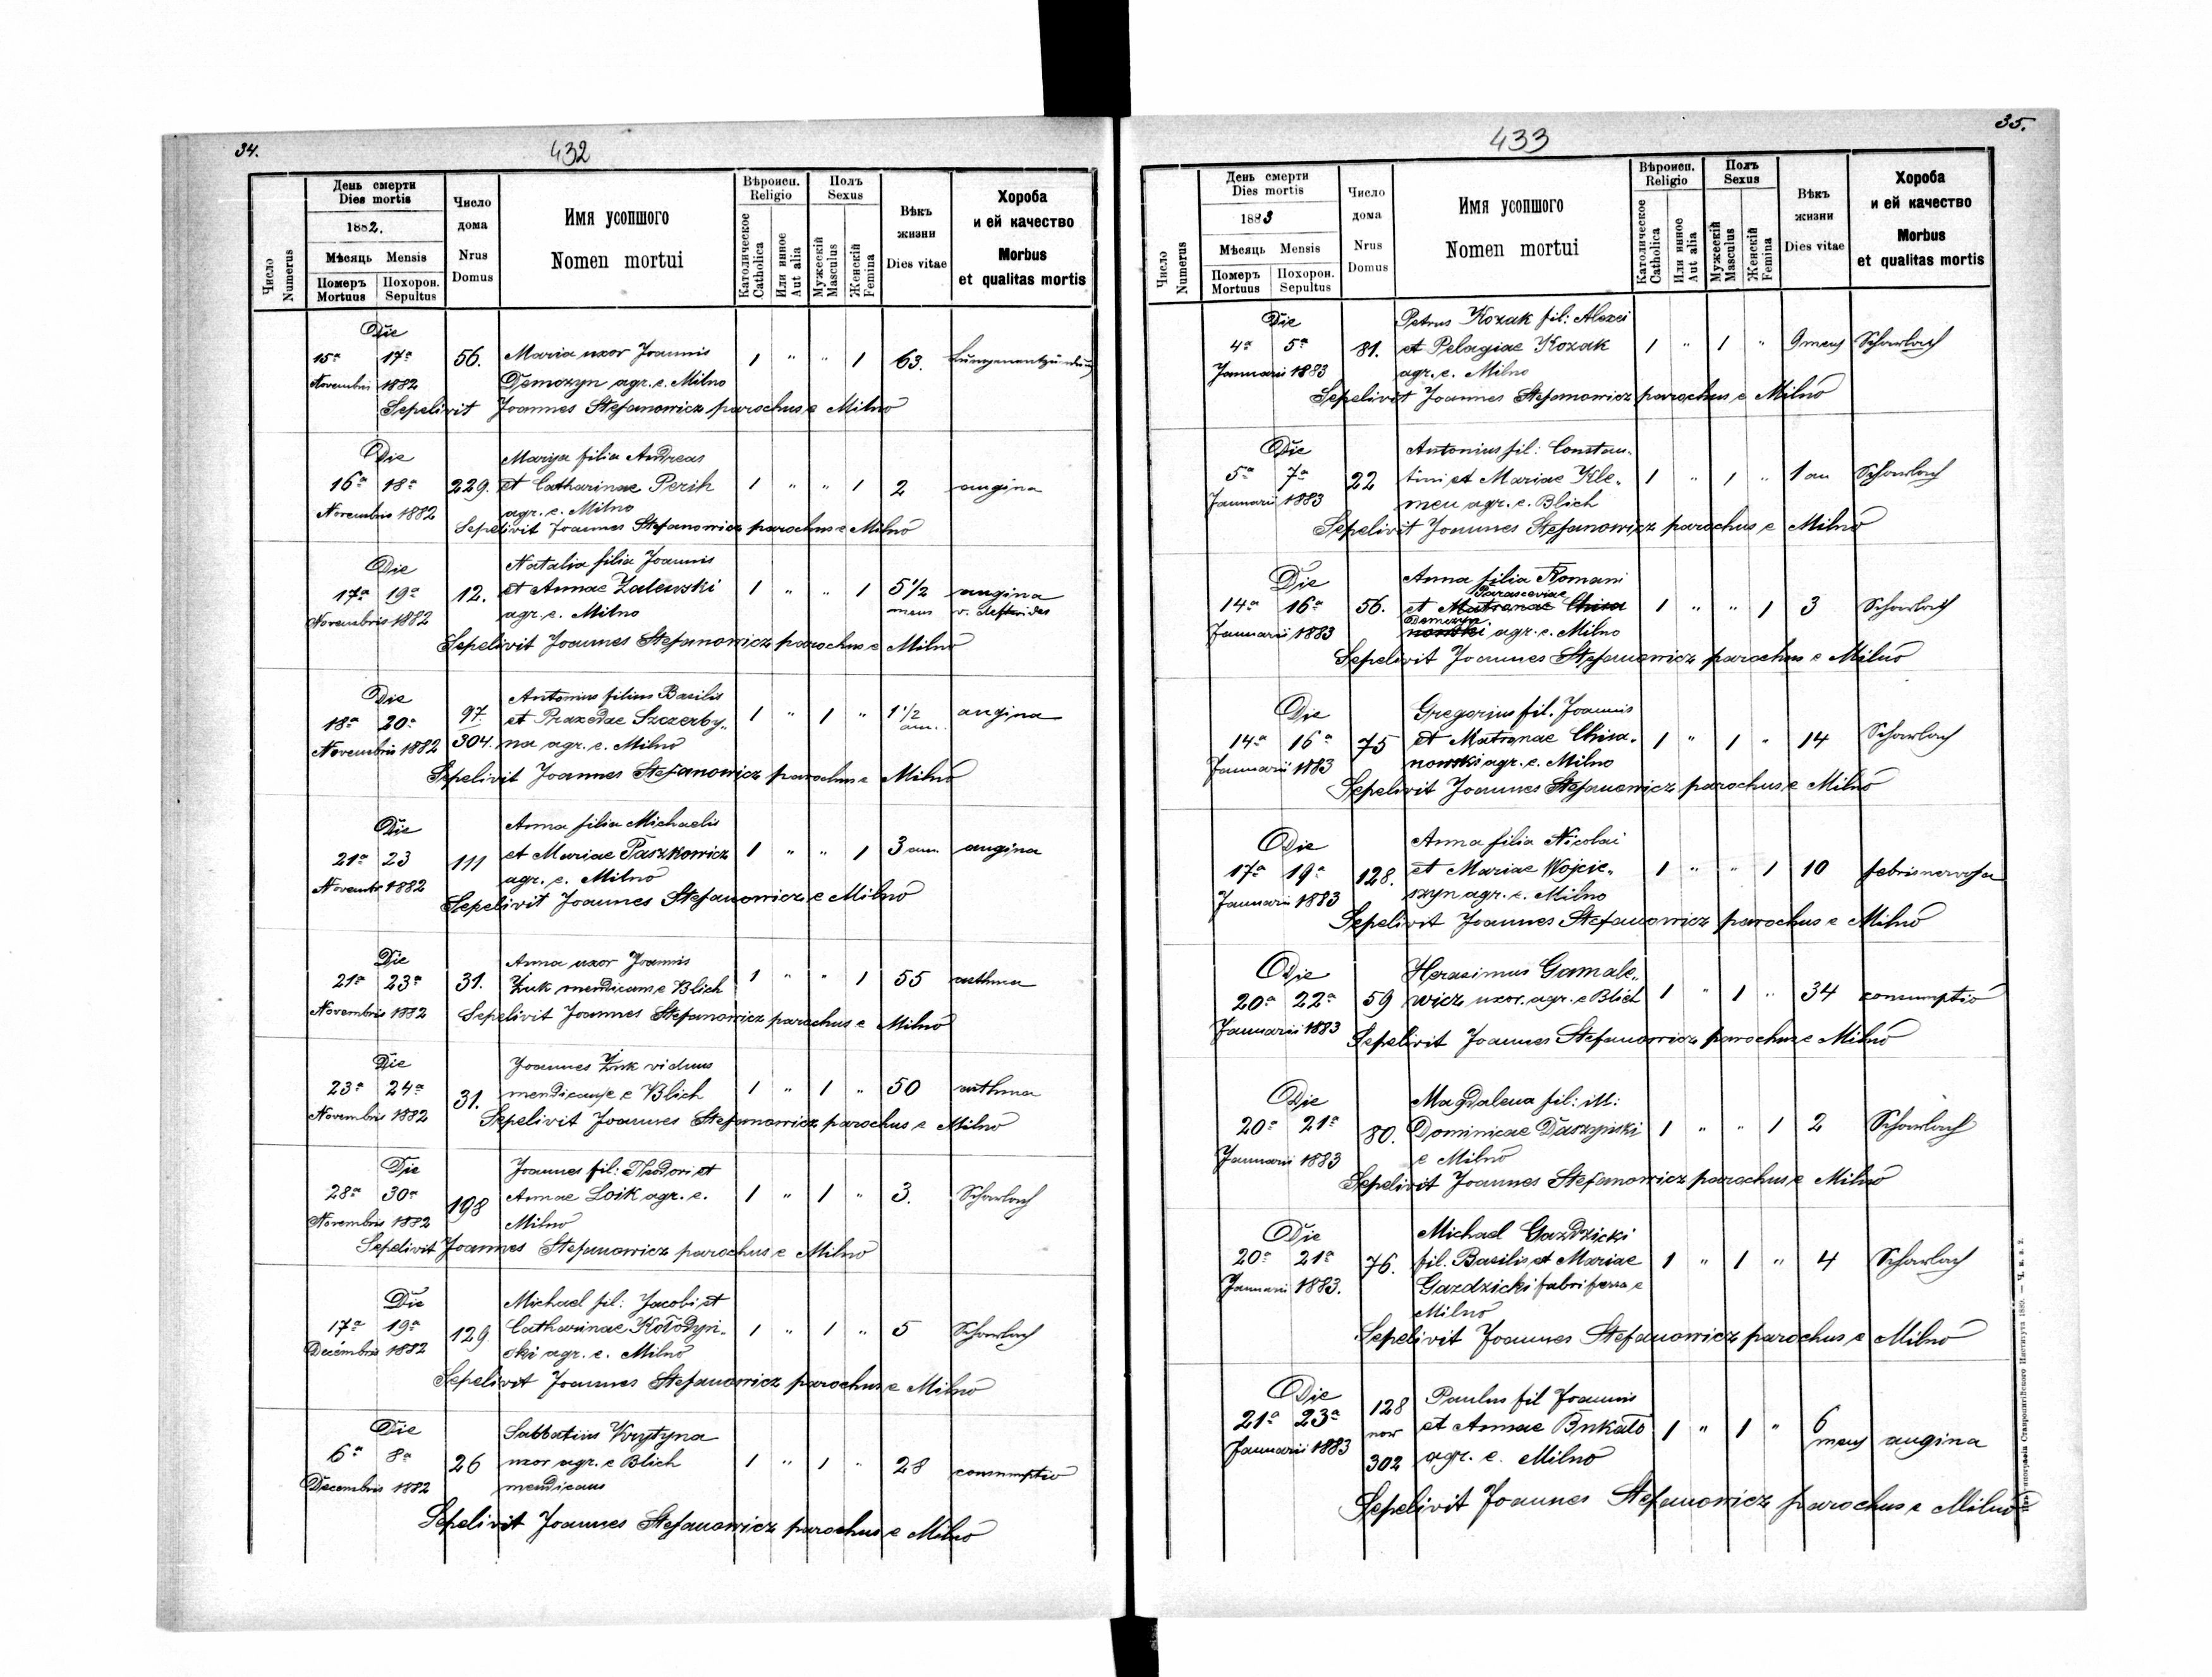 34.
432
Число
Numerus
День смерти
Dies mortis
1882.
Мѣсяць Mensis
Померъ
Mortuus
Похорон.
Sepultus
Число
дома
Nrus
Domus
Имя усопшого
Nomen mortui
Вѣроисп.
Religio
Католическое
Catholica
Или инное
Aut alia
Полъ
Sexus
Мужескій
Masculus
Женскій
Femina
Вѣкъ
жизни
Dies vitae
Хороба
и ей качество
Morbus
et qualitas mortis
Die
15ª 17ª 56. Maria uxor Joannis 1 " " 1 63. Lungenentzündung
Novembri 1882 Demczyn agr. e. Milno
Sepelivit Joannes Stefanowicz parochus e Milno
Die Marya filia Andreas
16ª 18ª 229. et Catharinae Perih 1 " " 1 2 angina
Novembris 1882 agr. e. Milno
Sepelivit Joannes Stefanowicz parochus e Milno
Die Natalia filia Joannis
17ª 19ª 12. et Annae Zalewski 1 " " 1 5 1/2 angina
Novembris 1882 agr. e. Milno mens
Sepelivit Joannes Stefanowicz parochus e Milno
Die 97. Antonius filius Basilis
18ª 20ª et Praxedae Szczerby„ 1 " 1 " 1 1/2 angina
Novembris 1882 304. na agr. e. Milno ann.
Sepelivit Joannes Stefanowicz parochus e Milno
Die Anna filia Michaelis
21ª 23 111 et Mariae Paszkowicz 1 " " 1 3 ann. angina
Novembr 1882 agr. e. Milno
Sepelivit Joannes Stefanowicz e Milno
Die Anna uxor Joannis
21ª 23ª 31. Żuk mendicans e Blich 1 " " 1 55 asthma
Novembris 1882 Sepelivit Joannes Stefanowicz parochus e Milno
Die Joannes Żuk viduus
23ª 24ª 31. mendicans e Blich 1 " 1 " 50 asthma
Novembris 1882 Sepelivit Joannes Stefanowicz parochus e Milno
Die Joannes fil: Theodori et
28ª 30ª 198 Annae Loik agr. e. 1 " 1 " 3. Scharlach
Novembris 1882 Milno
Sepelivit Joannes Stefanowicz parochus e Milno
Die Michael fil: Jacobi et
17ª 19ª 129 Catharinae Kołodyń„ 1 " 1 " 5 Scharlach
Decembris 1882 ski agr. e. Milno
Sepelivit Joannes Stefanowicz parochus e Milno
Die Sabbatius Krytyna
6ª 8ª 26 uxor agr. e Blich 1 " 1 " 28 consumptio
Decembris 1882 mendicans
Sepelivit Joannes Stefanowicz parochus e Milno
35.
433
Число
Numerus
День смерти
Dies mortis
1883
Мѣсяць Mensis
Померъ
Mortuus
Похорон.
Sepultus
Число
дома
Nrus
Domus
Имя усопшого
Nomen mortui
Вѣроисп.
Religio
Католическое
Catholica
Или инное
Aut alia
Полъ
Sexus
Мужескій
Masculus
Женскій
Femina
Вѣкъ
жизни
Dies vitae
Хороба
и ей качество
Morbus
et qualitas mortis
Die Petrus Kozak fil: Alexei
4ª 5ª 81. et Pelagiae Kozak 1 " 1 " 9 mens Scharlach
Januarii 1883 agr. e. Milno
Sepelivit Joannes Stefanowicz parochus e Milno
Die Antonius fil: Constan„
5ª 7ª 22 tini et Mariae Kle„ 1 " 1 " 1 an Scharlach
Januarii 1883 meu agr. e. Blich
Sepelivit Joannes Stefanowicz parochus e Milno
Die Anna filia Romani
Parasceviae
14ª 16ª 56. et Matronae Chisa 1 " " 1 3 Scharlach
Demczyn.
Januarii 1883 nowski agr. e. Milno
Sepelivit Joannes Stefanowicz parochus e Milno
Die Gregorius fil. Joannis
14ª 16ª 75 et Matronae Chisa„ 1 " 1 " 14 Scharlach
Januarii 1883 nowski agr. e. Milno
Sepelivit Joannes Stefanowicz parochus e Milno
Die Anna filia Nicolai
17ª 19ª 128. et Mariae Wojcie„ 1 " " 1 10 febris nervosa
Januarii 1883 szyn agr. e. Milno
Sepelivit Joannes Stefanowicz parochus e Milno
Die Herasimus Gamale„
20ª 22ª 59 wicz uxor. agr. e Blich 1 " 1 " 34 consumptio
Januarii 1883 Sepelivit Joannes Stefanowicz parochus e Milno
Die Magdalena fil: ill:
20ª 21ª 80. Dominicae Daszyński 1 " " 1 2 Scharlach
Januarii 1883 e Milno
Sepelivit Joannes Stefanowicz parochus e Milno
Die Michael Gazdzicki
20ª 21ª 76. fil. Basilis et Mariae 1 " 1 " 4 Scharlach
Januarii 1883. Gazdzicki fabri ferra e
Milno
Sepelivit Joannes Stefanowicz parochus e Milno
Die 128 Paulus fil Joannis
21ª 23ª nov et Annae Bukało 1 " 1 " 6 mens angina
Januarii 1883 302 agr. e. Milno
Sepelivit Joannes Stefanowicz parochus e Milno
Изъ типографіи Ставропигійского Института 1880. — Ч. в. в. 2.